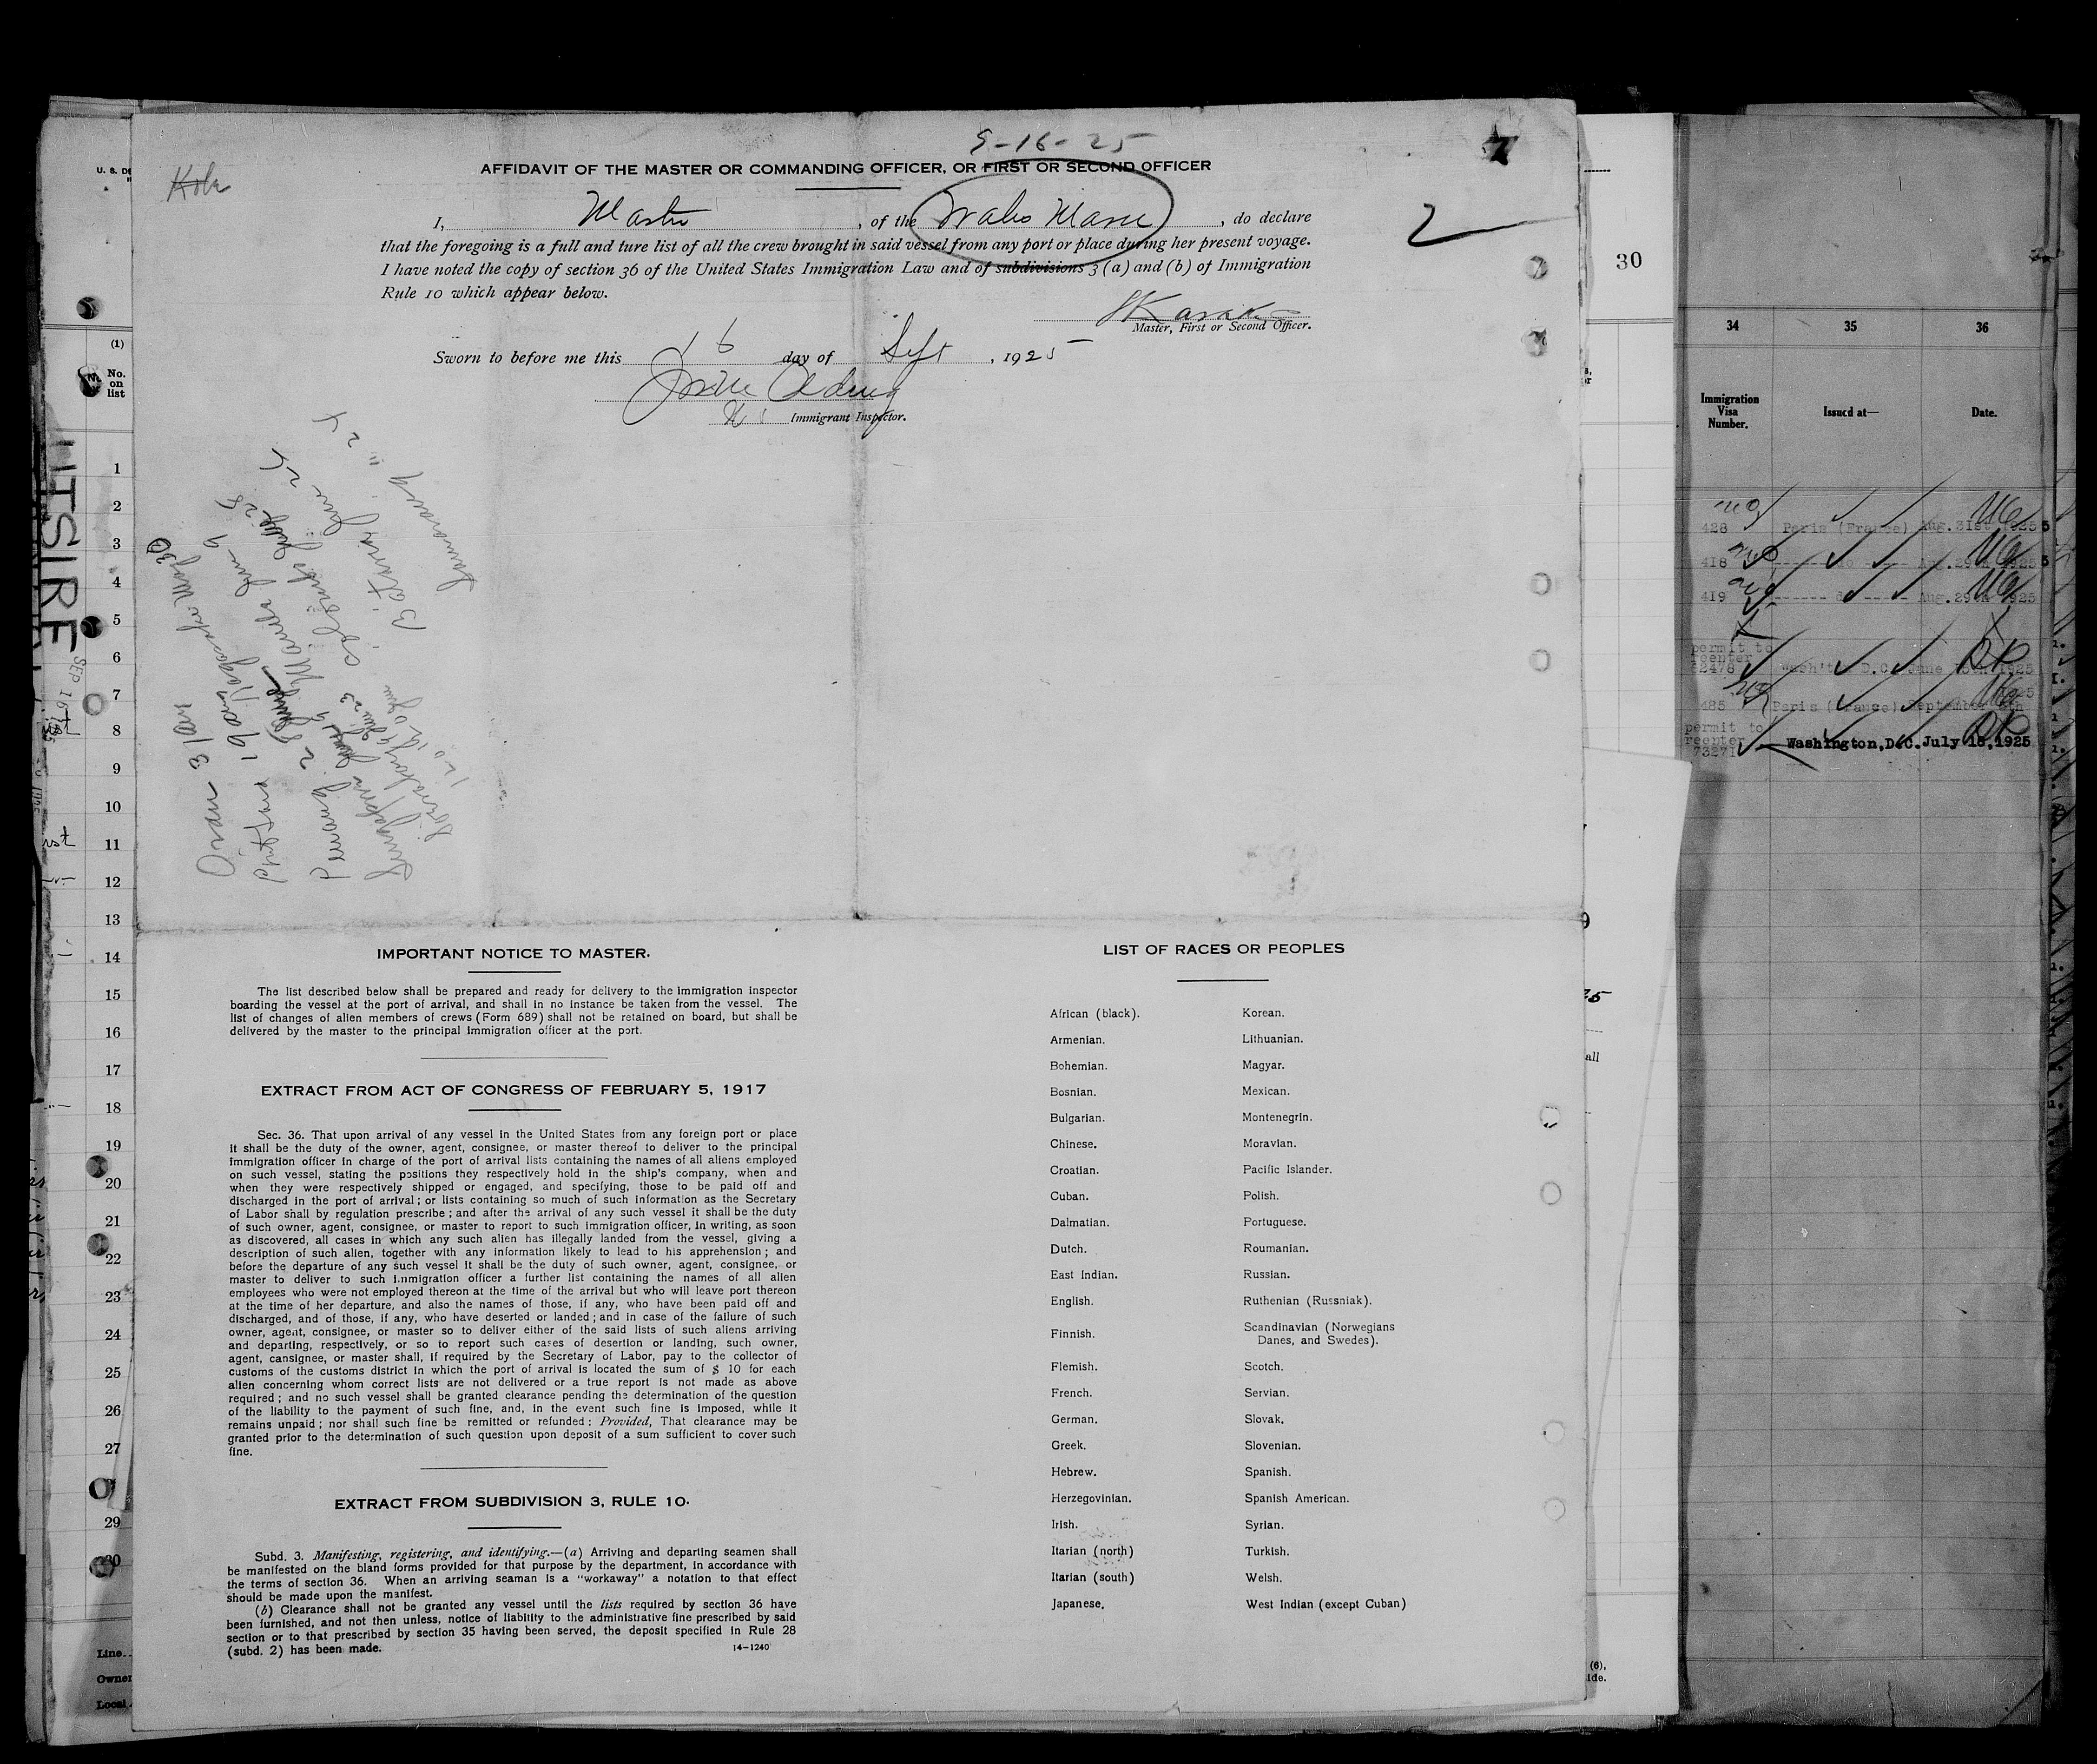 9-16-25
AFFIDAVIT OF THE MASTER OR COMMANDING OFFICER, OR FIRST OR SECOND OFFICER
I, Master, of the Maru, do declare
that the foregoing is a full and ture list of all the crew brought in said vessel from any port or place during her present voyage.
I have noted the copy of section 36 of the United States Immigration Law and of subdivisions 3 (a) and (b) of Immigration
Rule 10 which appear below.
2
Master, First or Second Officer.
Sworn to before me this 16 day of Sept, 1925
Immigrant Inspector.
Penang
Manila
Batavia June
Samarang " 24
IMPORTANT NOTICE TO MASTER.
The list described below shall be prepared and ready for delivery to the immigration inspector
boarding the vessel at the port of arrival, and shall in no instance be taken from the vessel. The
list of changes of alien members of crews (Form 689) shall not be retained on board, but shall be
delivered by the master to the principal immigration officer at the port.
EXTRACT FROM ACT OF CONGRESS OF FEBRUARY 5, 1917
Sec. 36. That upon arrival of any vessel in the United States from any foreign port or place
it shall be the duty of the owner, agent, consignee, or master thereof to deliver to the principal
immigration officer in charge of the port of arrival lists containing the names of all aliens employed
on such vessel, stating the positions they respectively hold in the ship's company, when and
when they were respectively shipped or engaged, and specifying, those to be paid off and
discharged in the port of arrival; or lists containing so much of such information as the Secretary
of Labor shall by regulation prescribe; and after the arrival of any such vessel it shall be the duty
of such owner, agent, consignee, or master to report to such immigration officer, in writing, as soon
as discovered, all cases in which any such alien has illegally landed from the vessel, giving a
description of such alien, together with any information likely to lead to his apprehension; and
before the departure of any such vessel it shall be the duty of such owner, agent, consignee, or
master to deliver to such immigration officer a further list containing the names of all alien
employees who were not employed thereon at the time of the arrival but who will leave port thereon
at the time of her departure, and also the names of those, if any, who have been paid off and
discharged, and of those, if any, who have deserted or landed; and in case of the failure of such
owner, agent, consignee, or master so to deliver either of the said lists of such aliens arriving
and departing, respectively, or so to report such cases of desertion or landing, such owner,
agent, cansignee, or master shall, if required by the Secretary of Labor, pay to the collector of
customs of the customs district in which the port of arrival is located the sum of $ 10 for each
alien concerning whom correct lists are not delivered or a true report is not made as above
required; and no such vessel shall be granted clearance pending the determination of the question
of the liability to the payment of such fine, and, in the event such fine is imposed, while it
remains unpaid; nor shall such fine be remitted or refunded: Provided, That clearance may be
granted prior to the determination of such question upon deposit of a sum sufficient to cover such
fine.
EXTRACT FROM SUBDIVISION 3, RULE 10.
Subd. 3. Manifesting, registering, and identifying.—(a) Arriving and departing seamen shall
be manifested on the bland forms provided for that purpose by the department, in accordance with
the terms of section 36. When an arriving seaman is a "workaway" a notation to that effect
should be made upon the manifest.
(b) Clearance shall not be granted any vessel until the lists required by section 36 have
been furnished, and not then unless, notice of liability to the administrative fine prescribed by said
section or to that prescribed by section 35 having been served, the deposit specified in Rule 28
(subd. 2) has been made.
14-1240
LIST OF RACES OR PEOPLES
African (black). Korean.
Armenian. Lithuanian.
Bohemian. Magyar.
Bosnian. Mexican.
Bulgarian. Montenegrin.
Chinese. Moravian.
Croatian. Pacific Islander.
Cuban. Polish.
Dalmatian. Portuguese.
Dutch. Roumanian.
East Indian. Russian.
English. Ruthenian (Russniak).
Finnish. Scandinavian (Norwegians
Danes, and Swedes).
Flemish. Scotch.
French. Servian.
German. Slovak.
Greek. Slovenian.
Hebrew. Spanish.
Herzegovinian. Spanish American.
Irish. Syrian.
Itarian (north) Turkish.
Itarian (south) Welsh.
Japanese. West Indian (except Cuban)
(1)
No.
on
list
1
2
3
4
5
6
7
8
9
10
11
12
13
14
15
16
17
18
19
20
21
22
23
24
25
26
27
29
30
Line
Owner
Local
30
34 35 36
Immigration
Visa
Number.
Issued at—
Date.
428 Paris (France) Aug. 31st 1925
418 Aug. 29th 1925
419 Aug. 29th 1925
permit to
reenter
Wash't D.C. June 1925
485 Paris (France) September
permit to
reenter
73271 Washington, D.C. July 15, 1925